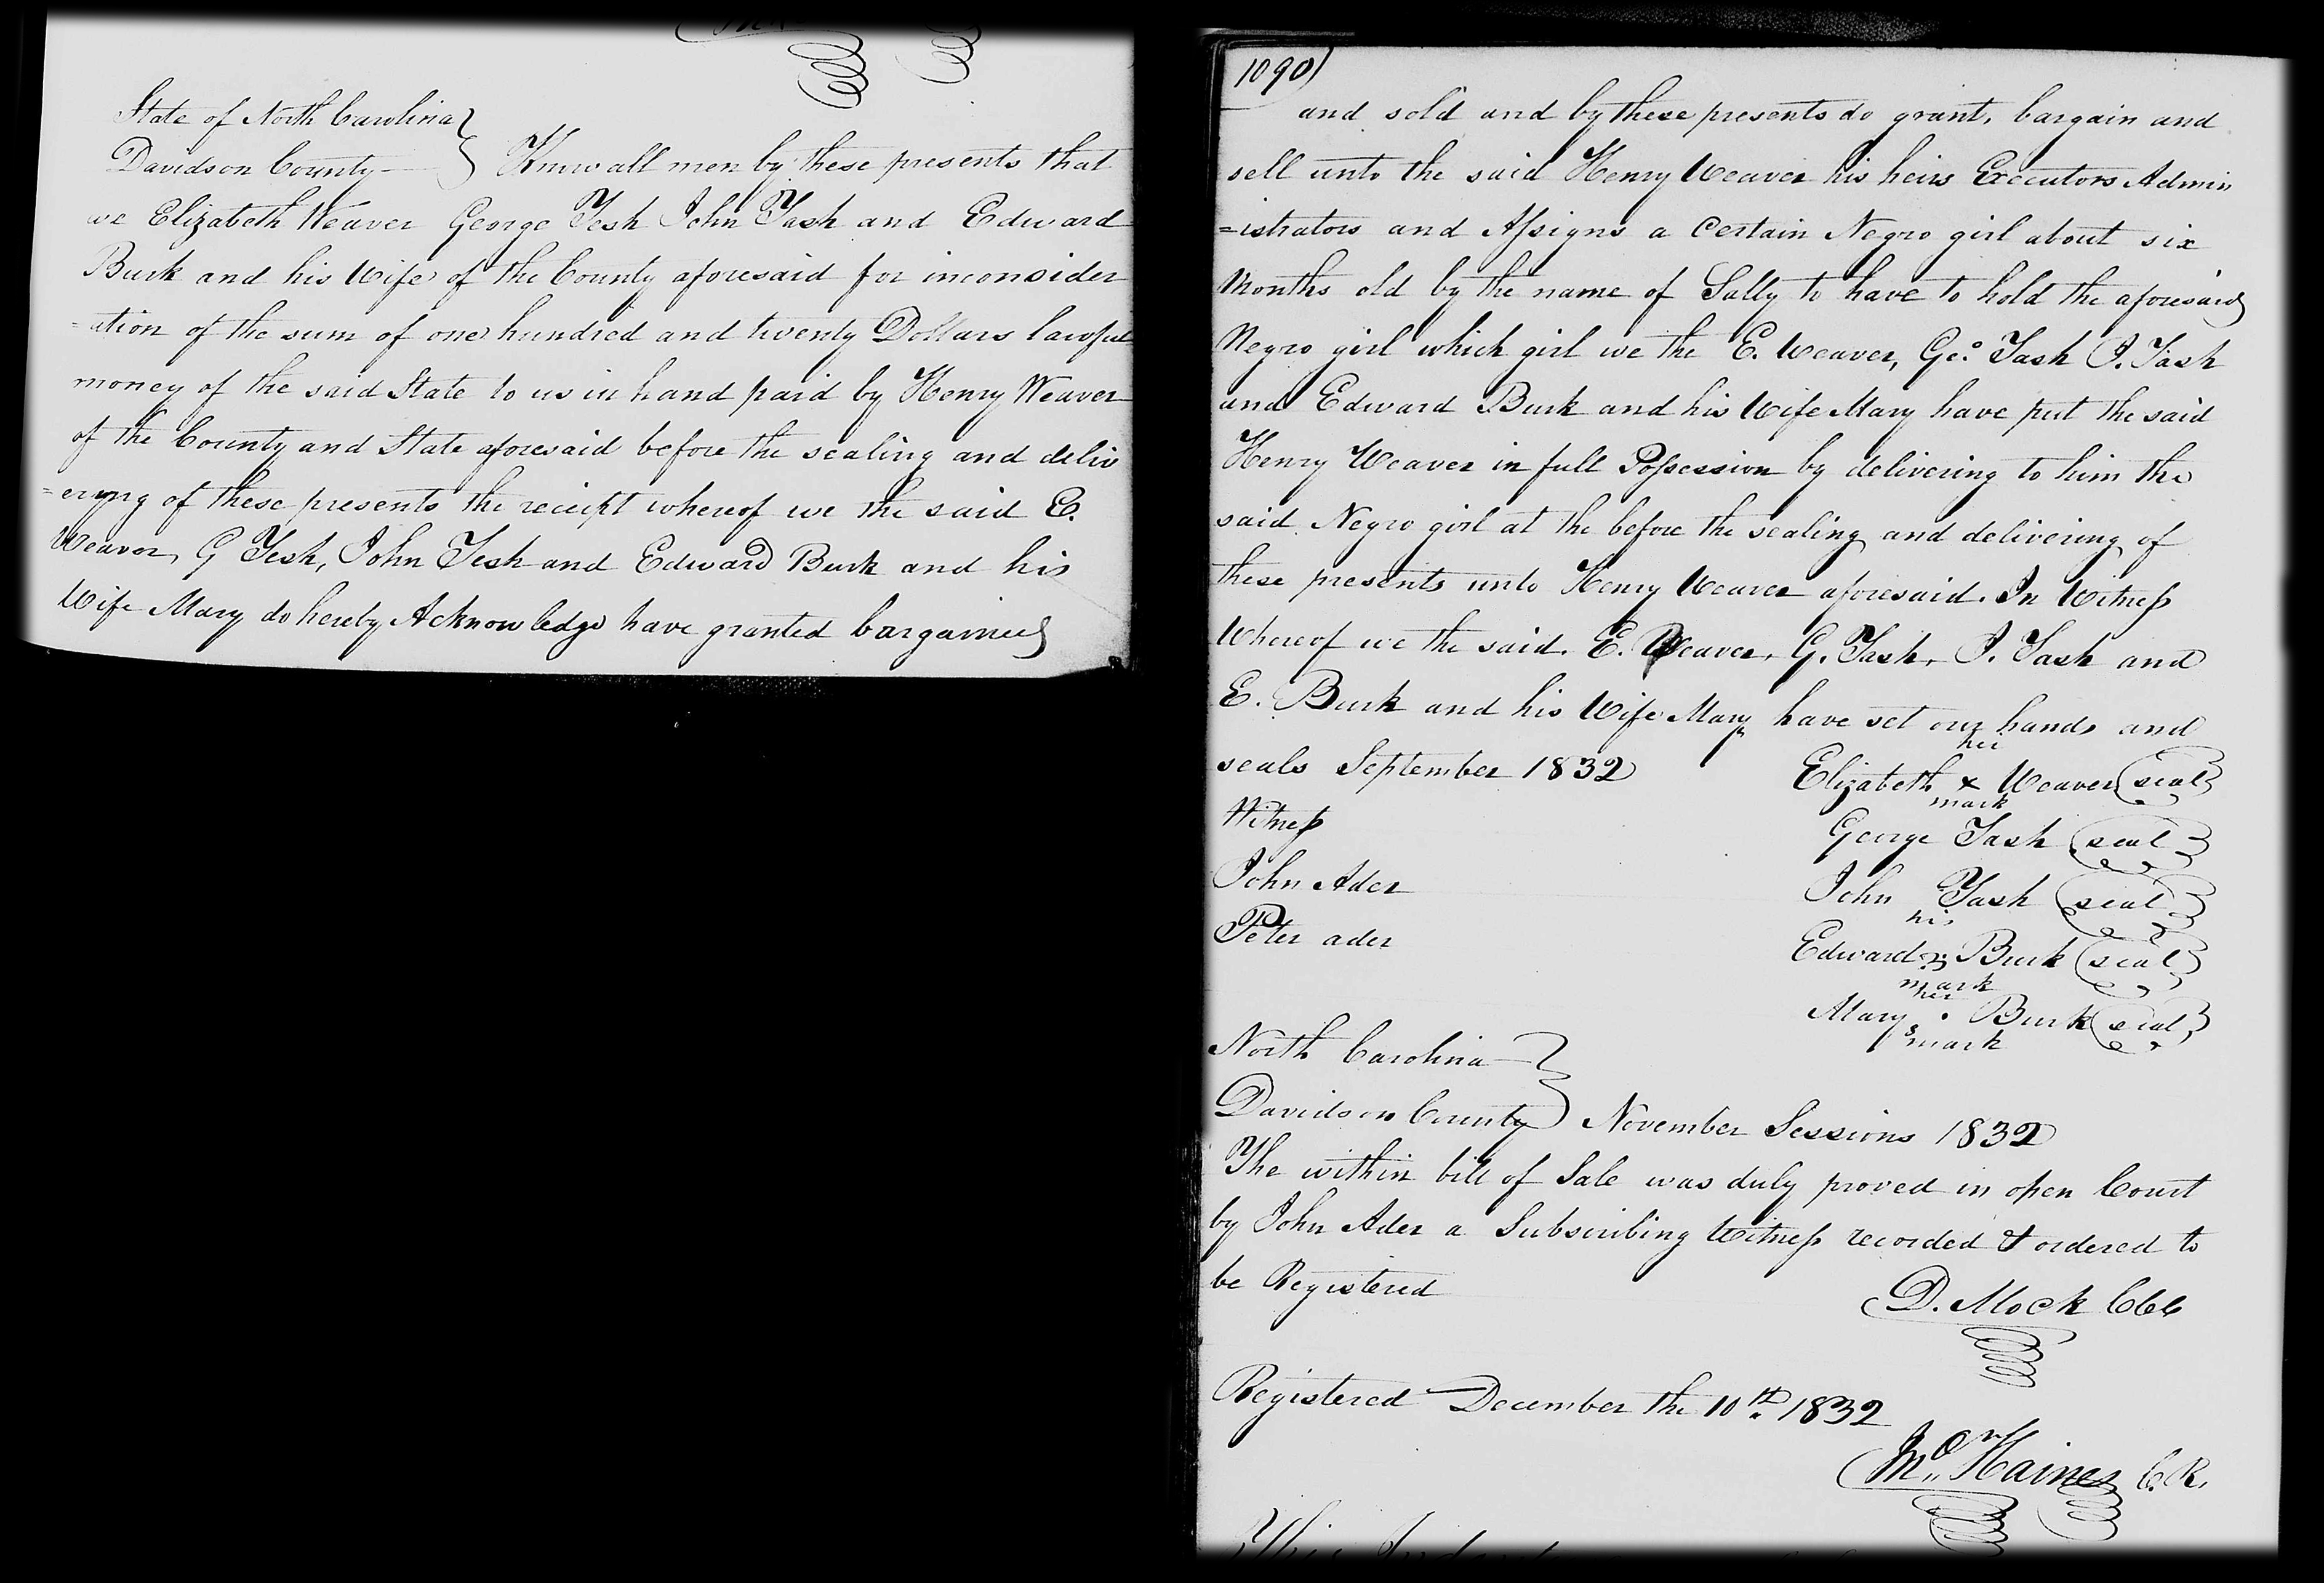 State of North Carolina
Davidson County Know all men by these presents that
we Elizabeth Weaver George Tesh John Tash and Edward
Burk and his Wife of the County aforesaid for inconsider
=ation of the sum of one hundred and twenty Dollars lawful
money of the said State to us in hand paid by Henry Weaver
of the County and State aforesaid before the sealing and deliv
=ering of these presents the receipt whereof we the said E.
Weaver, G Tesh, John Tesh and Edward Burk and his
Wife Mary do hereby Acknowledge have granted bargained
1090)
and sold and by these presents do grant, bargain and
sell unto the said Henry Weaver his heirs Executors Admin
=istrators and Assigns a Certain Negro girl about six
Months old by the name of Sally to have to hold the aforesaid
Negro girl which girl we the E. Weaver, Geo. Tash J. Tash
and Edward Burk and his Wife Mary have put the said
Henry Weaver in full Possession by delivering to him the
said Negro girl at the before the sealing and delivering of
these presents unto Henry Weaver aforesaid. In Witness
Whereof we the said. E. Weaver, G. Tash, J. Tash and
E. Burk and his Wife Mary have set our hands and
seals September 1832
her
Elizabeth x Weaver (seal)
mark
Witness
George Tash (seal)
John Ader
John Tash (seal)
Peter ader
his
Edward Burk (seal)
mark
her
Mary Burk (seal)
mark
North Carolina
Davidson County November Sessions 1832
The within bill of Sale was duly proved in open Court
by John Ader a Subscribing Witness recorded & ordered to
be Registered
D. Mock CCC
Registered December the 10th 1832
Haines C.R.
This